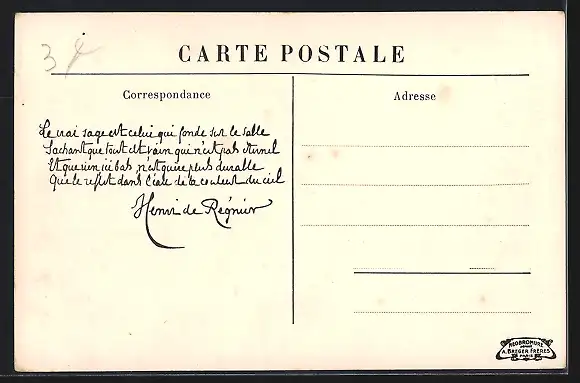 3
CARTE POSTALE
Correspondance
Adresse
Le vrai sage est celui qui fonde sur le sable
Sachant que tout est vain qui n'est pas éternel
Et que rien ici bas n'est guère plus durable
Que le reflet dans l'eau de la couleur du ciel
Henri de Régnier
NÉOBROMURE
A. BREGER FRÈRES
PARIS